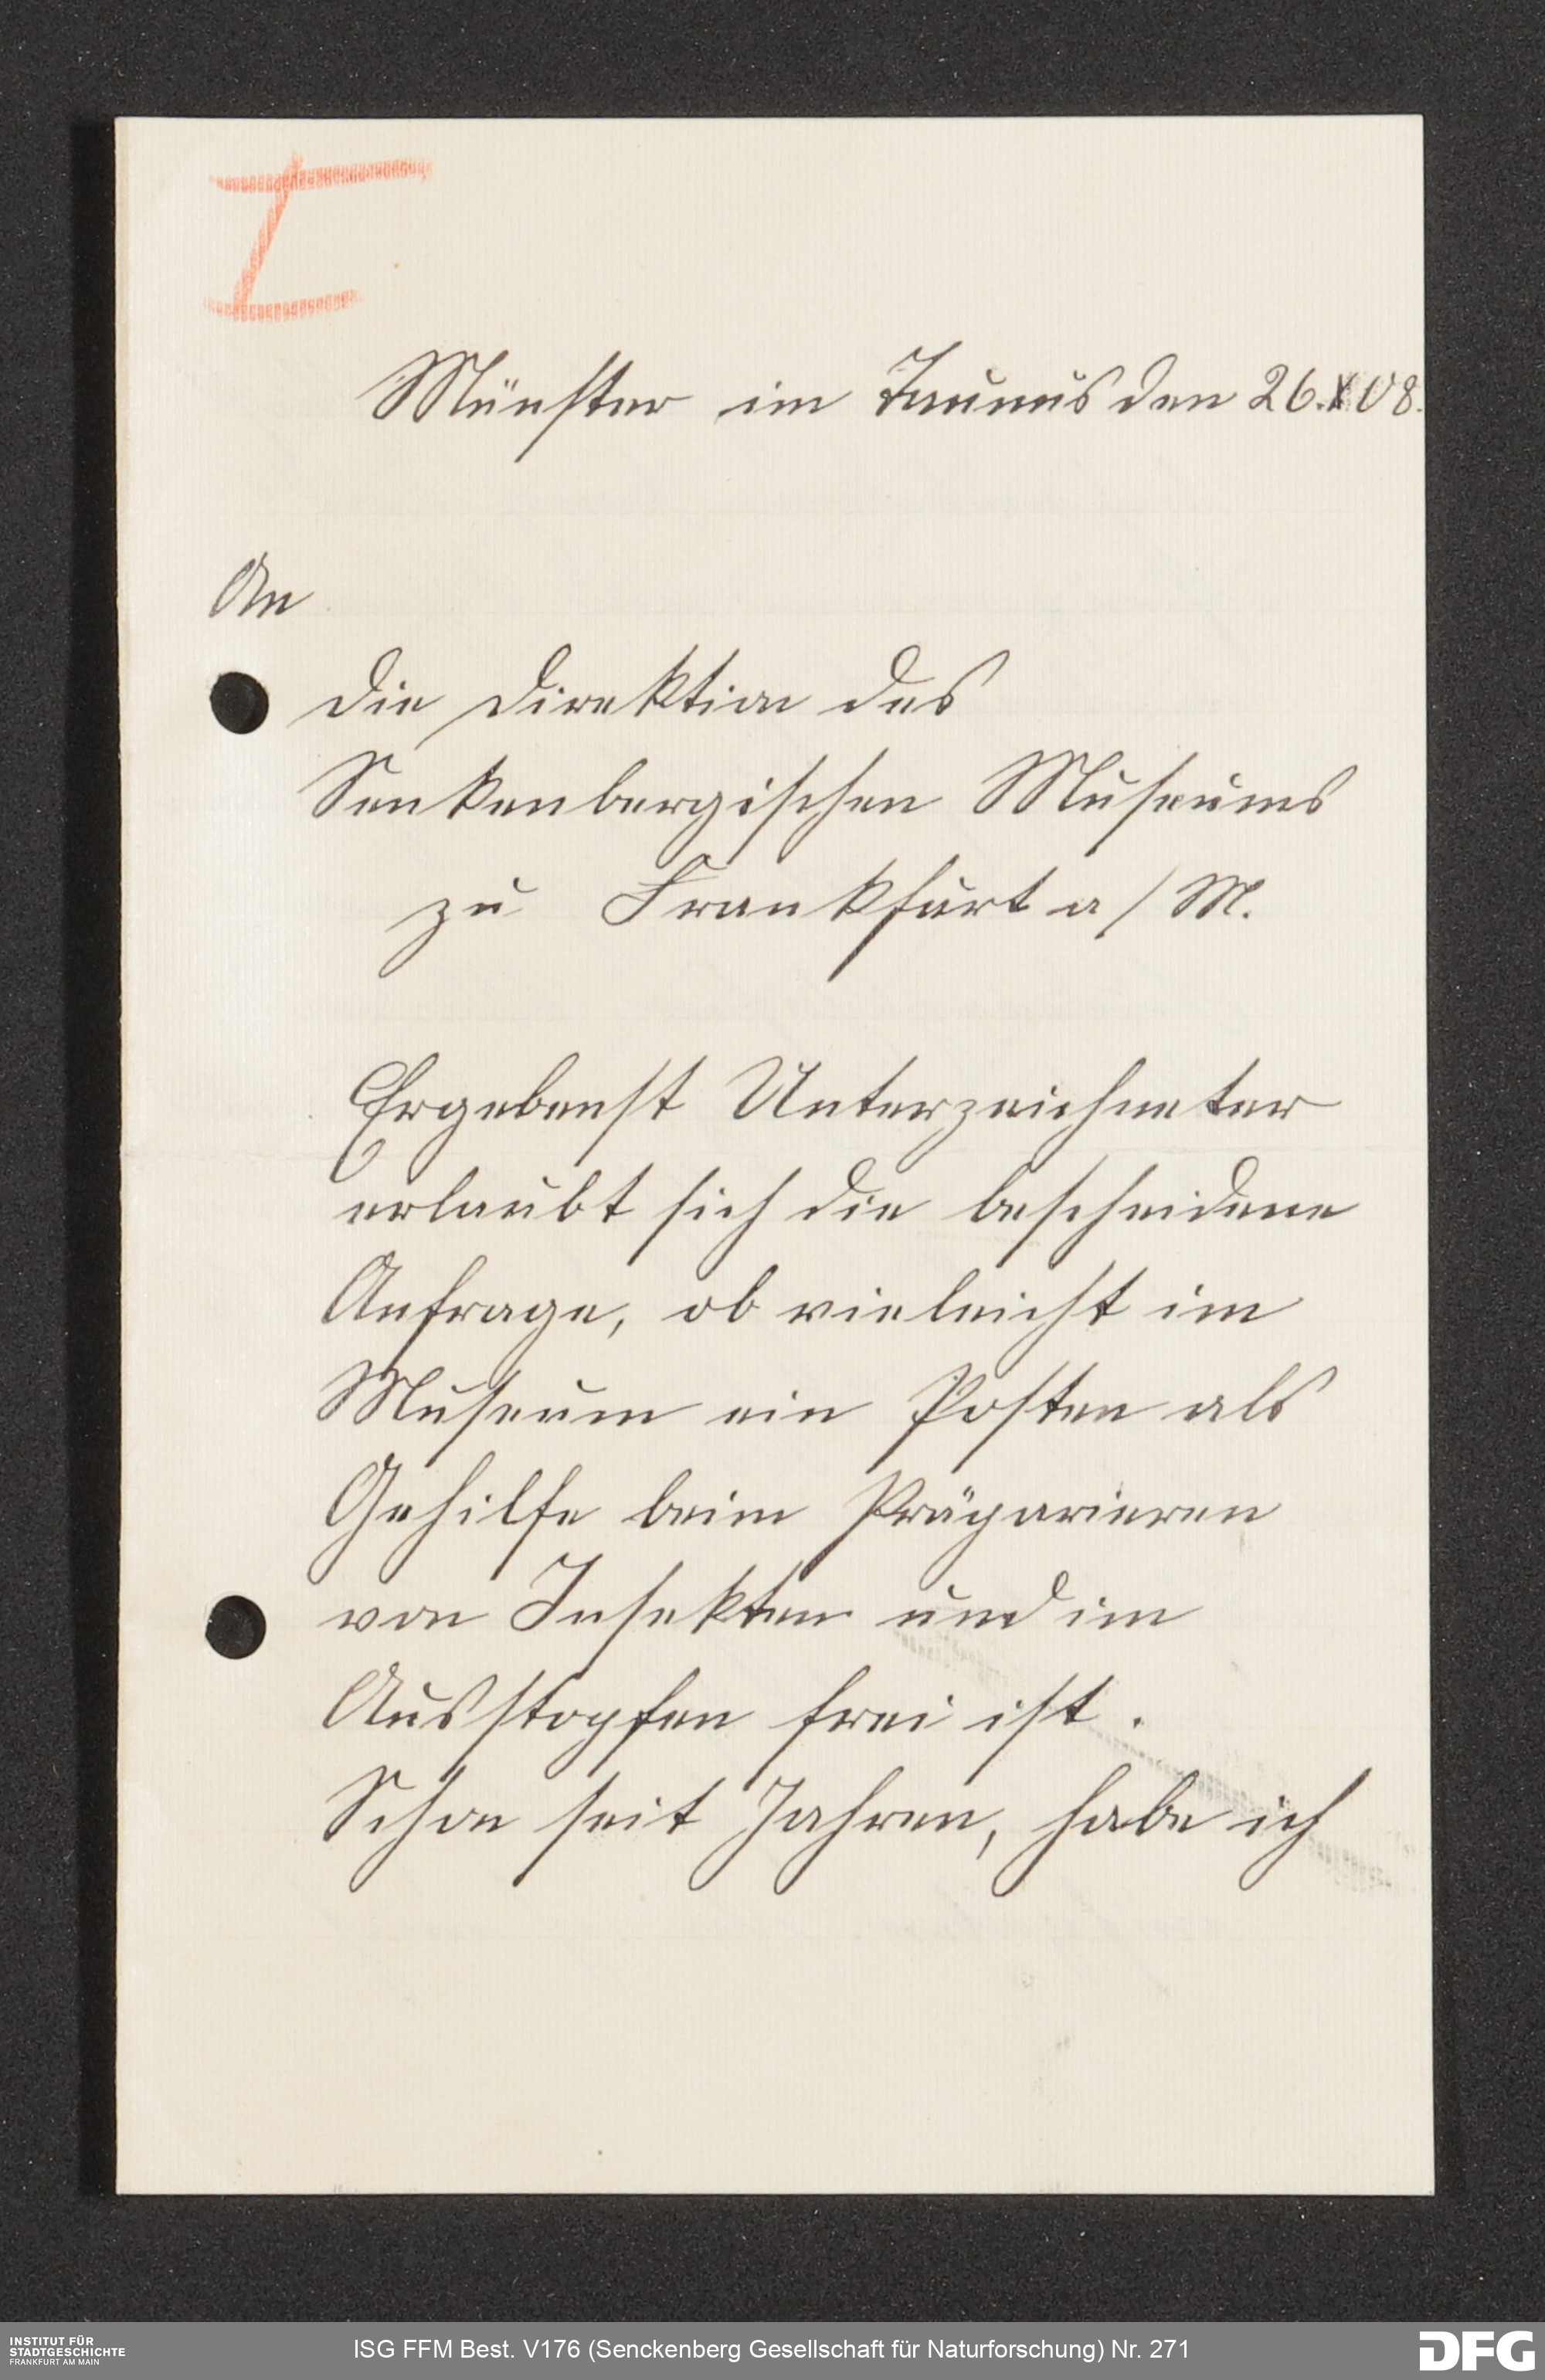 I
Münster im Taunus den 26.X.08.
An
die Direktion des
Senkenbergischen Museums
zu Frankfurt a/M.
Ergebenst Unterzeichneter
erlaubt sich die bescheidene
Anfrage, ob vieleicht im
Museum ein Posten als
Gehilfe beim Präparieren
von Insekten und im
Ausstopfen frei ist.
Schon seit Jahren, habe ich
INSTITUT FÜR
STADTGESCHICHTE
FRANKFURT AM MAIN
ISG FFM Best. V176 (Senckenberg Gesellschaft für Naturforschung) Nr. 271
DFG